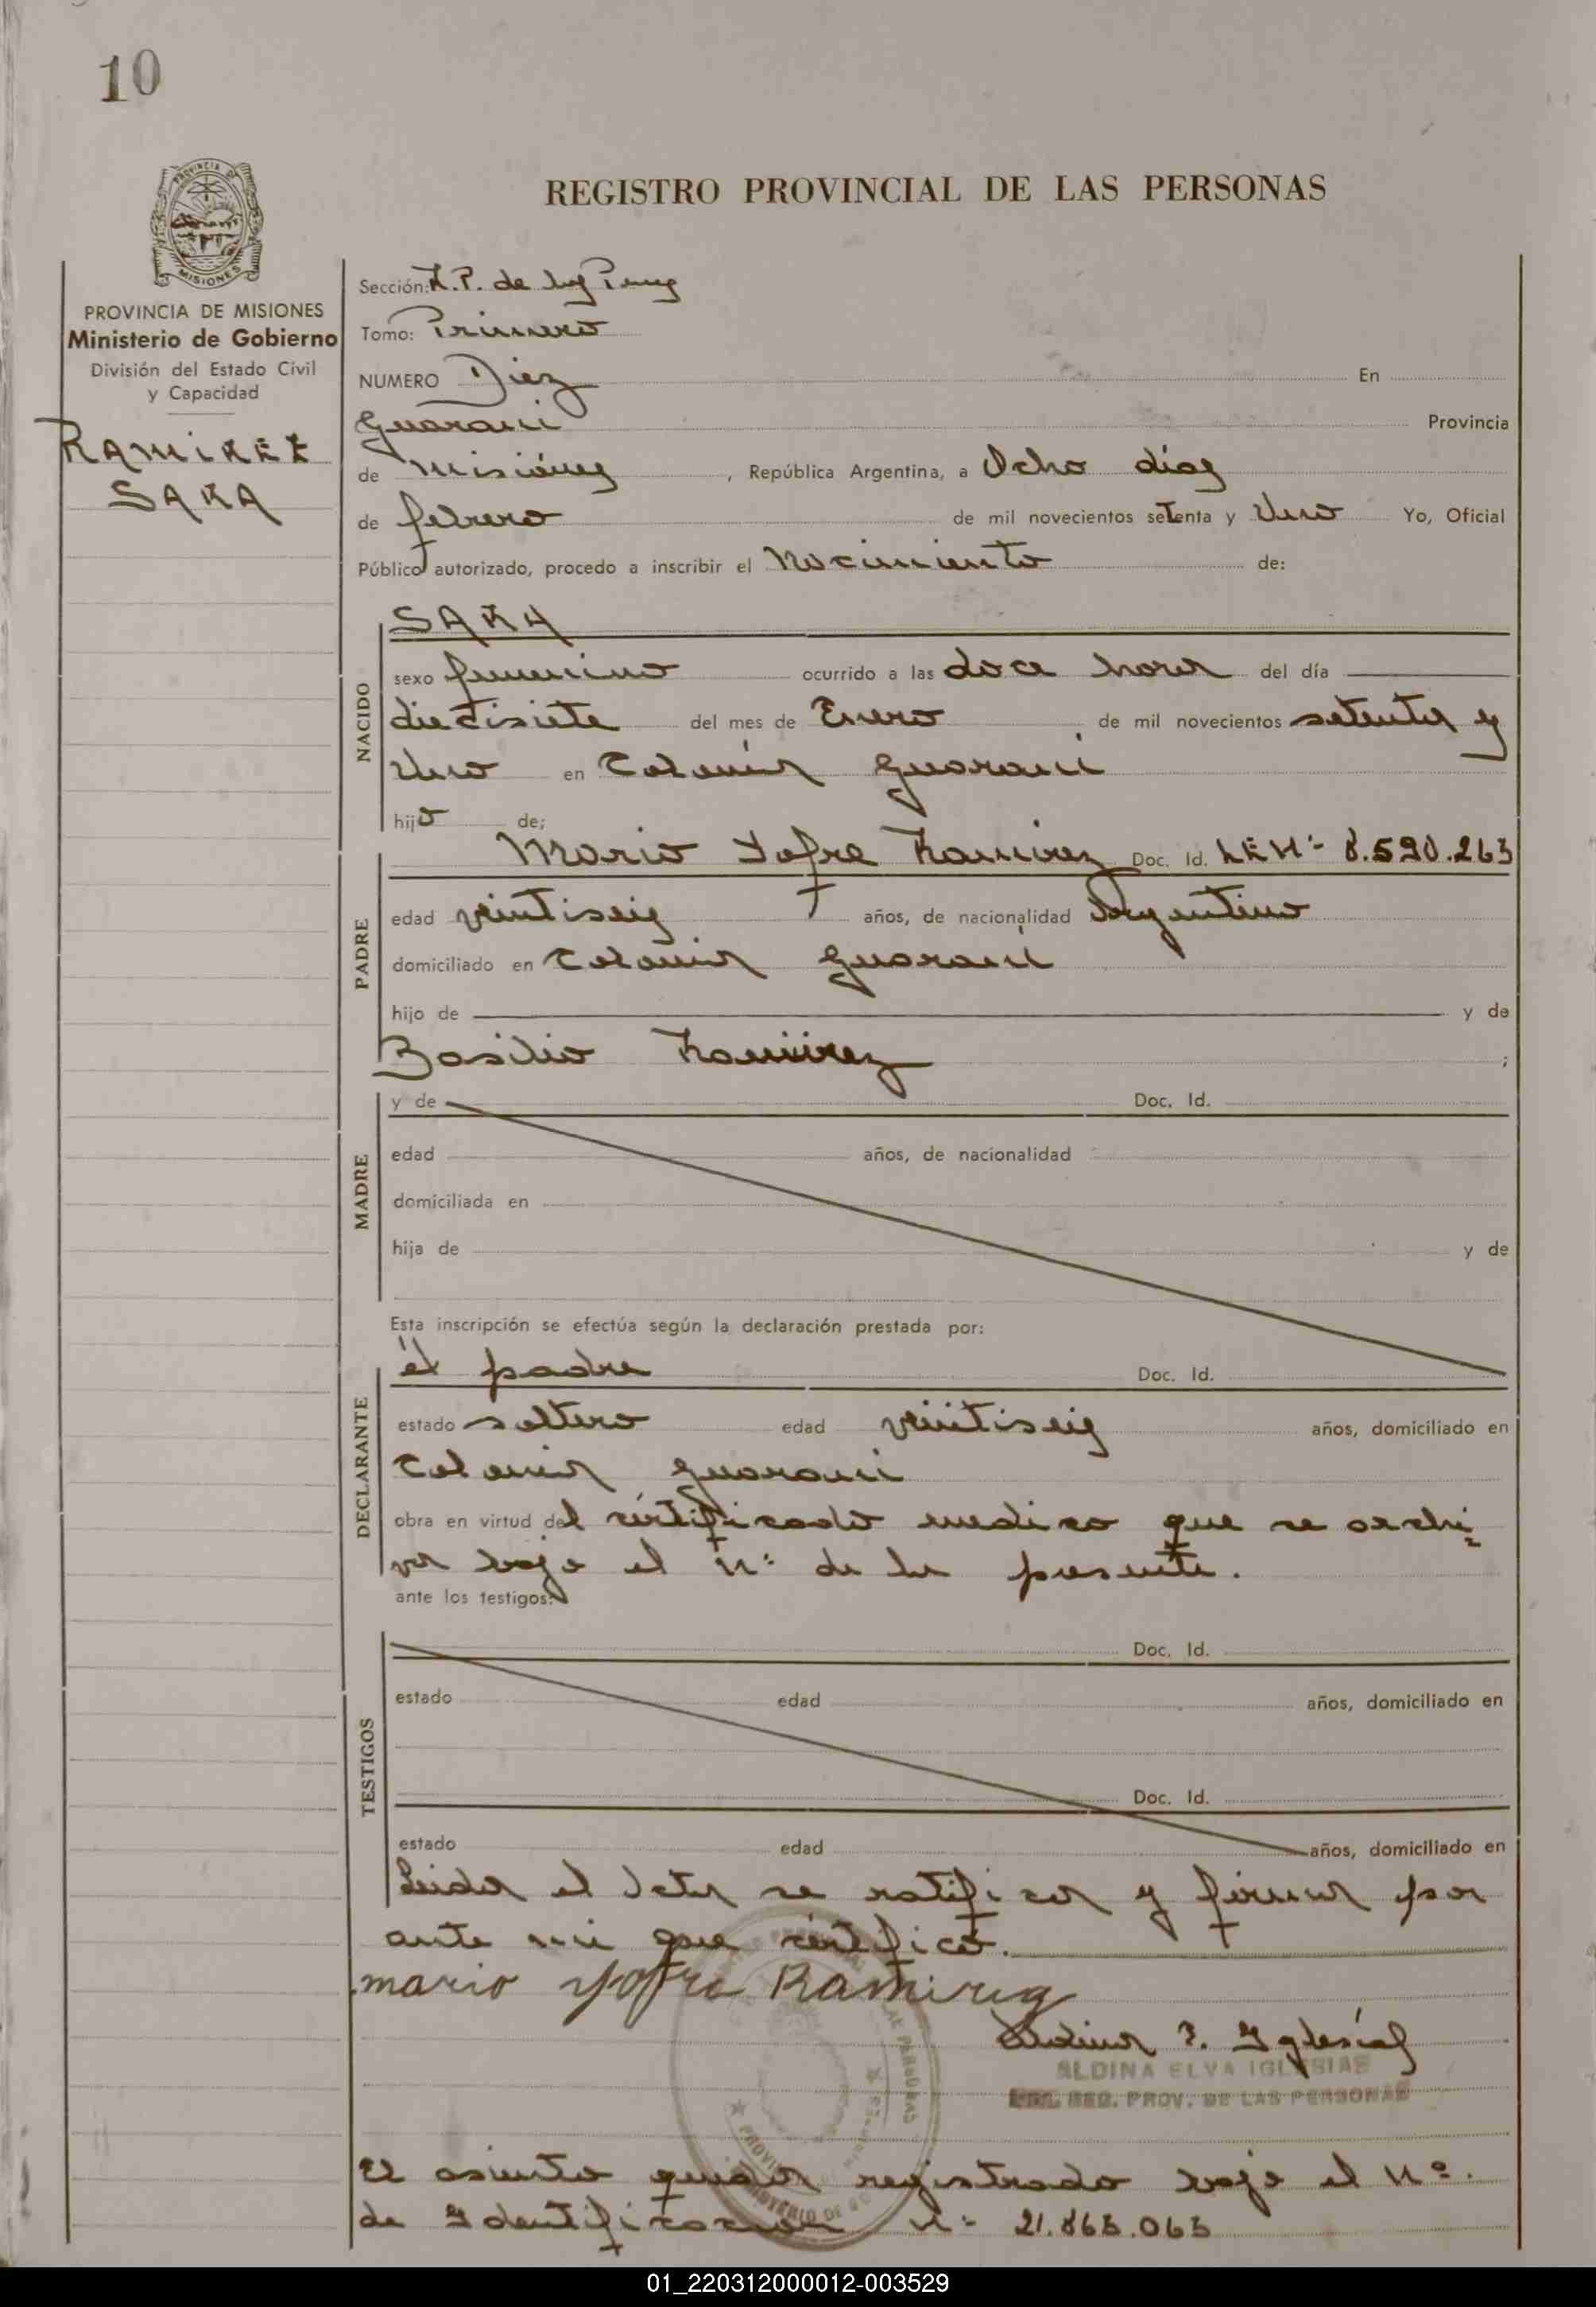 10
REGISTRO PROVINCIAL DE LAS PERSONAS
PROVINCIA DE MISIONES
Ministerio de Gobierno
División del Estado Civil
y Capacidad
RAMIREZ
SARA
Sección: R.P. de las Pers
Tomo: Primero
NUMERO Diez En
Guarani Provincia
de Misiónes, República Argentina, a Ocho dias
de febrero de mil novecientos setenta y Uno Yo, Oficial
Público autorizado, procedo a inscribir el Nacimiento de:
NACIDO
SARA
sexo femenino ocurrido a las doce horas del día
diecisiete del mes de Enero de mil novecientos setenta y
Uno en Colonia Guarani
hijo de;
PADRE
Mario Yofre Ramirez Doc. Id. LENº 8.590.263
edad veintiseis años, de nacionalidad Argentino
domiciliado en Colonia Guarani
hijo de y de
Basilio Ramirez ;
MADRE
y de Doc. Id.
edad años, de nacionalidad
domiciliada en
hija de y de
Esta inscripción se efectúa según la declaración prestada por:
DECLARANTE
él padre Doc. Id.
estado soltero edad veintiseis años, domiciliado en
Colonia Guarani
obra en virtud del certificado medico que se archi
va bajo el Nº de la presente.
ante los testigos:
TESTIGOS
Doc. Id.
estado edad años, domiciliado en
Doc. Id.
estado edad años, domiciliado en
Leida el Acta se ratifica y firma por
ante mi que certifico.
mario Yofre Ramirez
Aldina E. Iglesias
ALDINA ELVA IGLESIAS
REG. PROV. DE LAS PERSONAS
El asiento queda registrado bajo el Nº
de Identificacion Nº 21.863.063
01_220312000012-003529